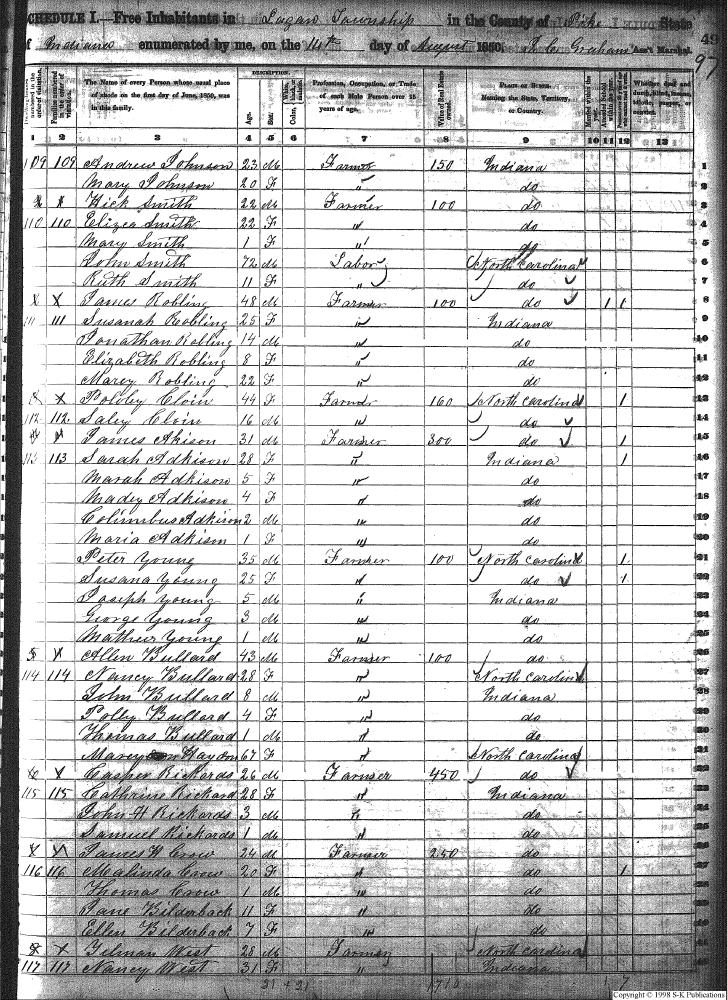 SCHEDULE I.—Free Inhabitants in Township in the County of Pike State
of Indiana enumerated by me, on the 14th day of August 1850. Graham Ass't Marshal. 49
97
DESCRIPTION.
The Name of every Person whose usual place of abode on the first day of June, 1850, was in this family.
Age.
Sex.
Profession, Occupation, or Trade of each Male Person over 15 years of age.
Value of Real Estate owned.
PLACE OF BIRTH. Naming the State, Territory, or Country.
1 2 3 4 5 6 7 8 9 10 11 12 13
109 109 Andrew Johnson 23 M Farmer 150 Indiana 1
Mary Johnson 20 F " do 2
x x Hick Smith 22 M Farmer 100 do 3
110 110 Eliza Smith 22 F " do 4
Mary Smith 1 F " do 5
John Smith 72 M Labor North Carolina 6
Ruth Smith 11 F " do 7
x x James Robling 48 M Farmer 100 do 1 1 8
111 111 Susanah Robling 25 F " Indiana 9
Jonathan Robling 14 M " do 10
Elizabeth Robling 8 F " do 11
Marey Robling 22 F " do 12
x x Cloin 44 F Farmer 160 North Carolina 1 13
112 112 Saley Cloin 16 M " do 14
x x James Akison 31 M Farmer 300 do 1 15
113 113 Sarah Adkison 28 F " Indiana 1 16
Marah Adkison 5 F " do 17
Madey Adkison 4 F " do 18
Colimbus Adkison 2 M " do 19
Maria Adkison 1 F " do 20
Peter Young 35 M Farmer 100 North Carolina 1 21
Susana Young 25 F " do 1 22
Joseph Young 5 M " Indiana 23
George Young 3 M " do 24
Mathew Young 1 M " do 25
x Allen Bullard 43 M Farmer 100 do 26
114 114 Nancy Bullard 28 F " North Carolina 27
John Bullard 8 M " Indiana 28
Polly Bullard 4 F " do 29
Thomas Bullard 1 M " do 30
Marey Haydon 67 F " North Carolina 31
x x Casper Rickards 26 M Farmer 450 do 32
115 115 Cathrine Rickard 28 F " Indiana 33
John H Rickards 3 M " do 34
Samuel Rickards 1 M " do 35
x x James H Crow 24 M Farmer 250 do 36
116 116 Malinda Crow 20 F " do 1 37
Thomas Crow 1 M " do 38
Jane Bilderback 11 F " do 39
Ellen Bilderback 7 F " do 40
x x Tilman West 28 M Farmer North Carolina 41
117 117 Nancy West 31 F " Indiana 42
21 + 21
Copyright © 1998 S-K Publications